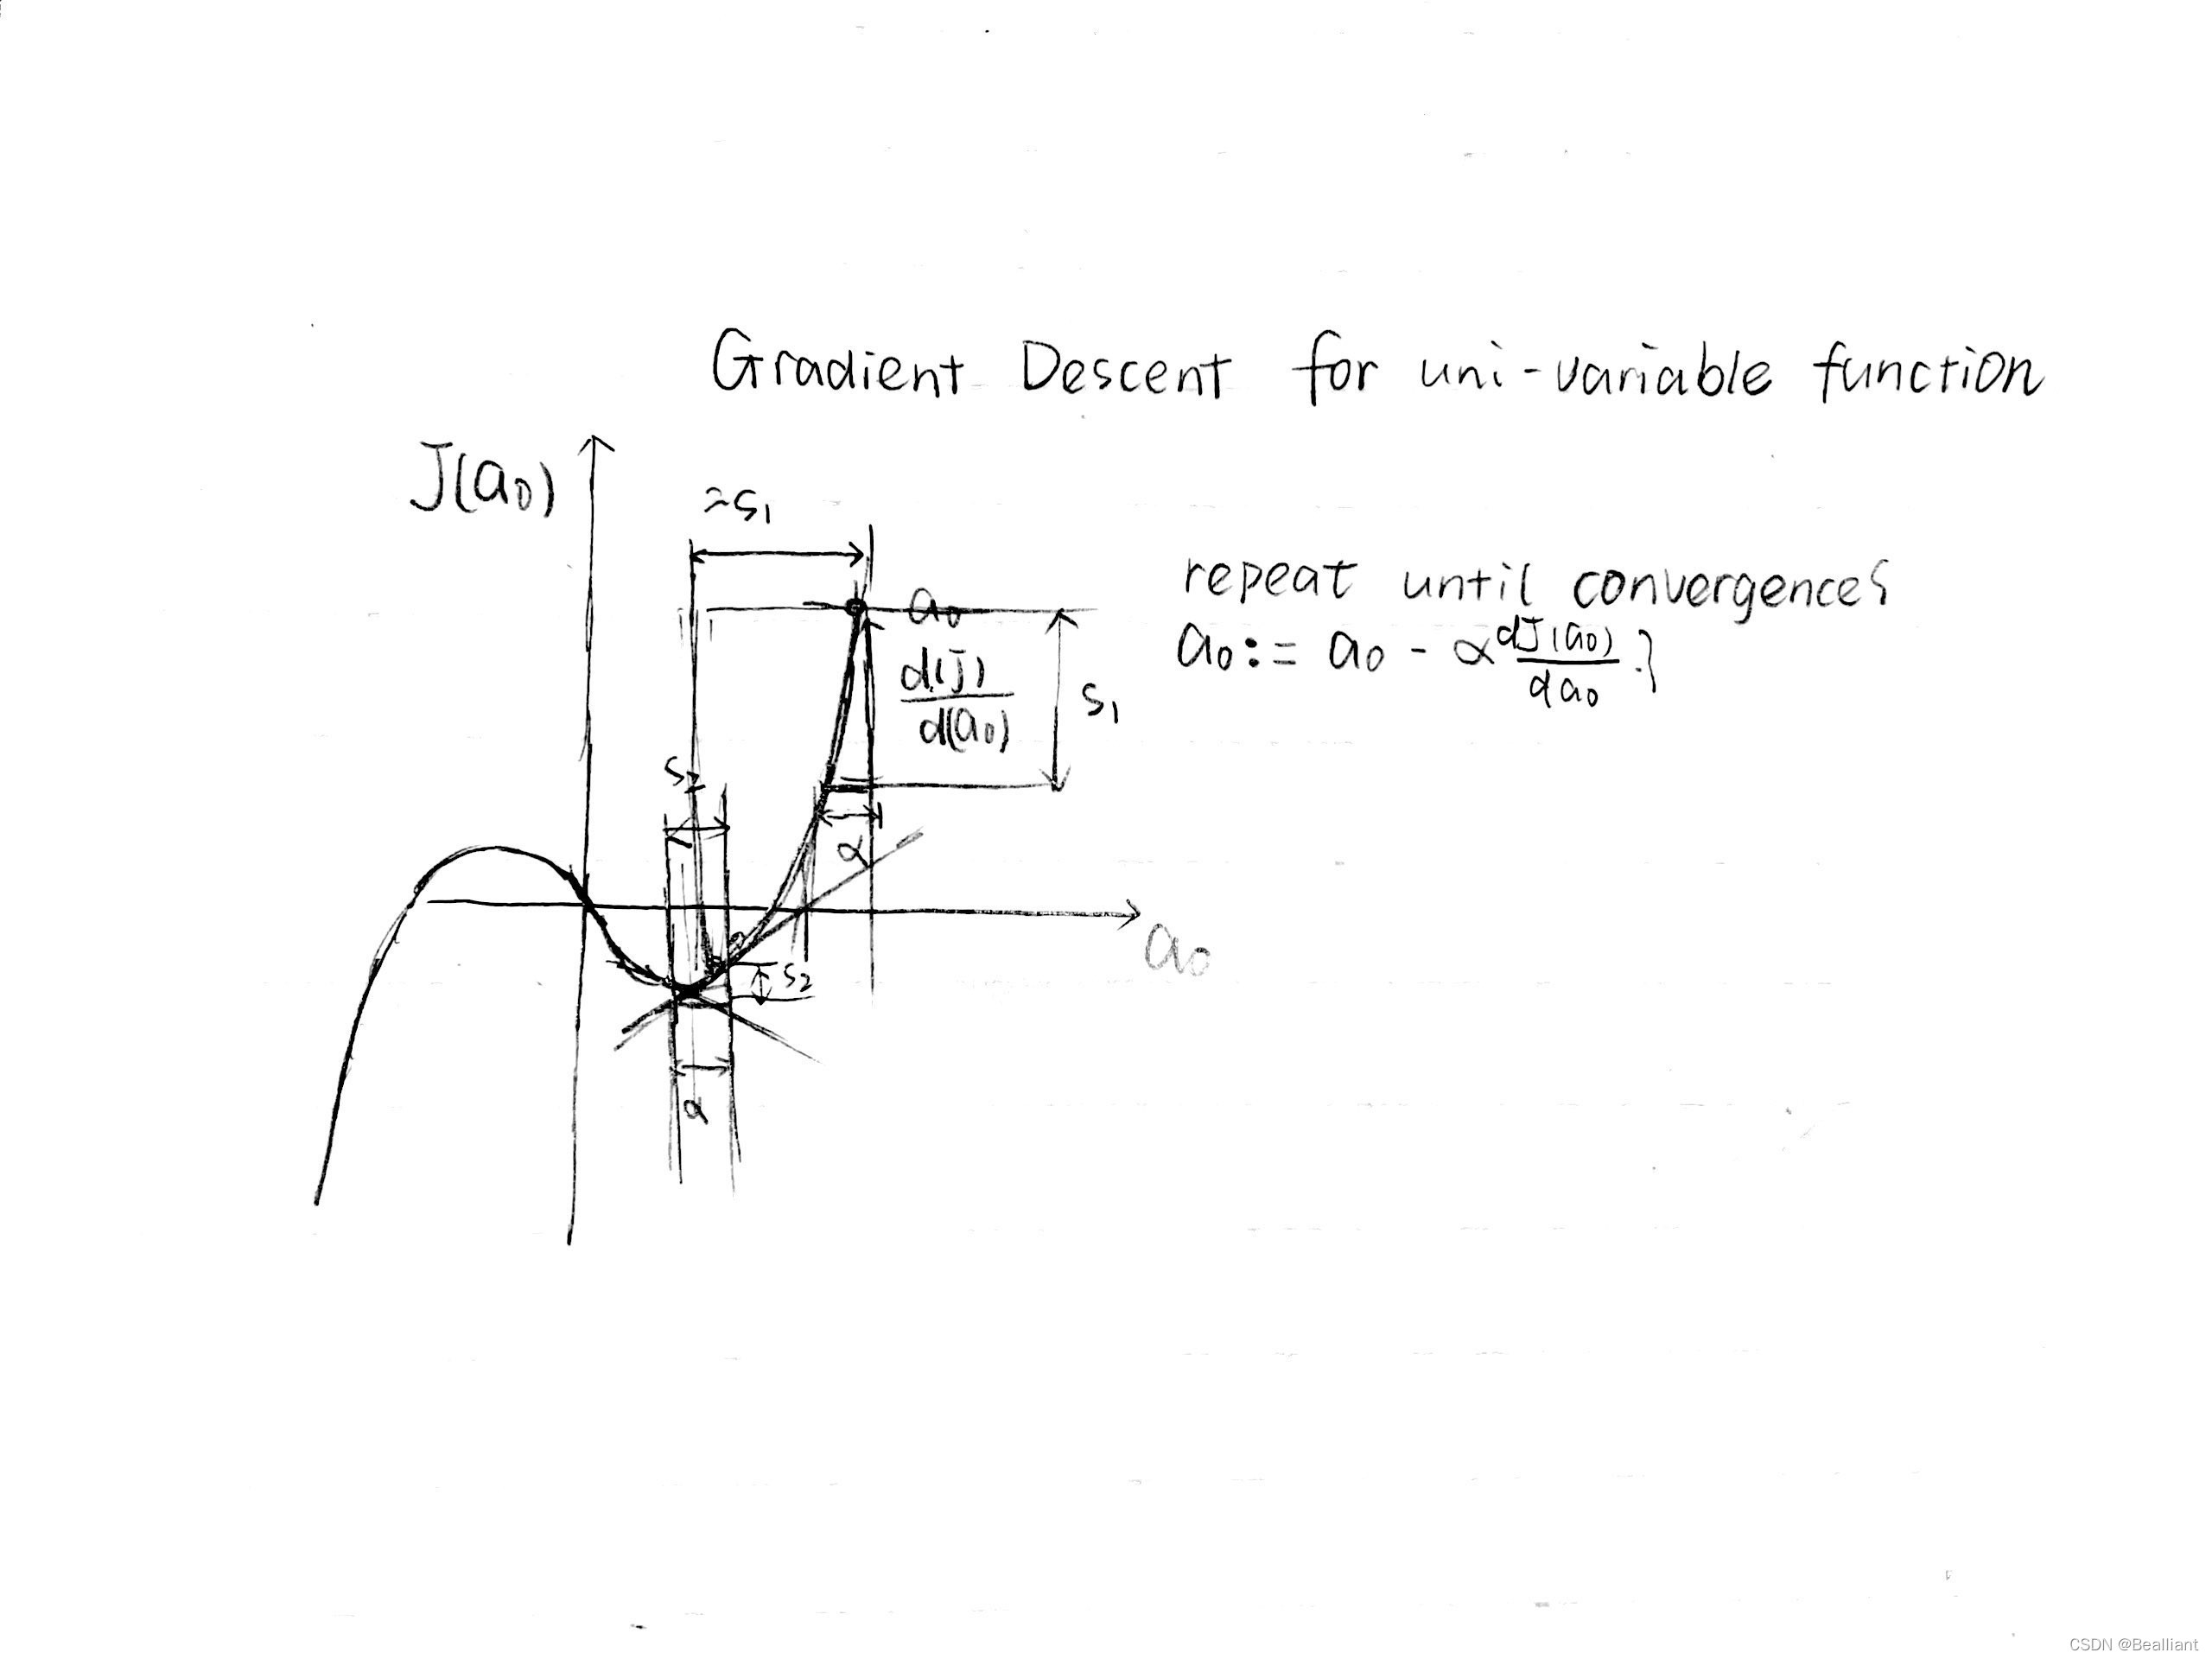 Gradient Descent for uni-variable function
J(a₀)
≈S₁
a₀
d(J)
d(a₀)
S₁
repeat until convergence{
a₀ := a₀ - α dJ(a₀)
da₀ }
S₂
α
a₀
S₂
α
CSDN @Bealliant